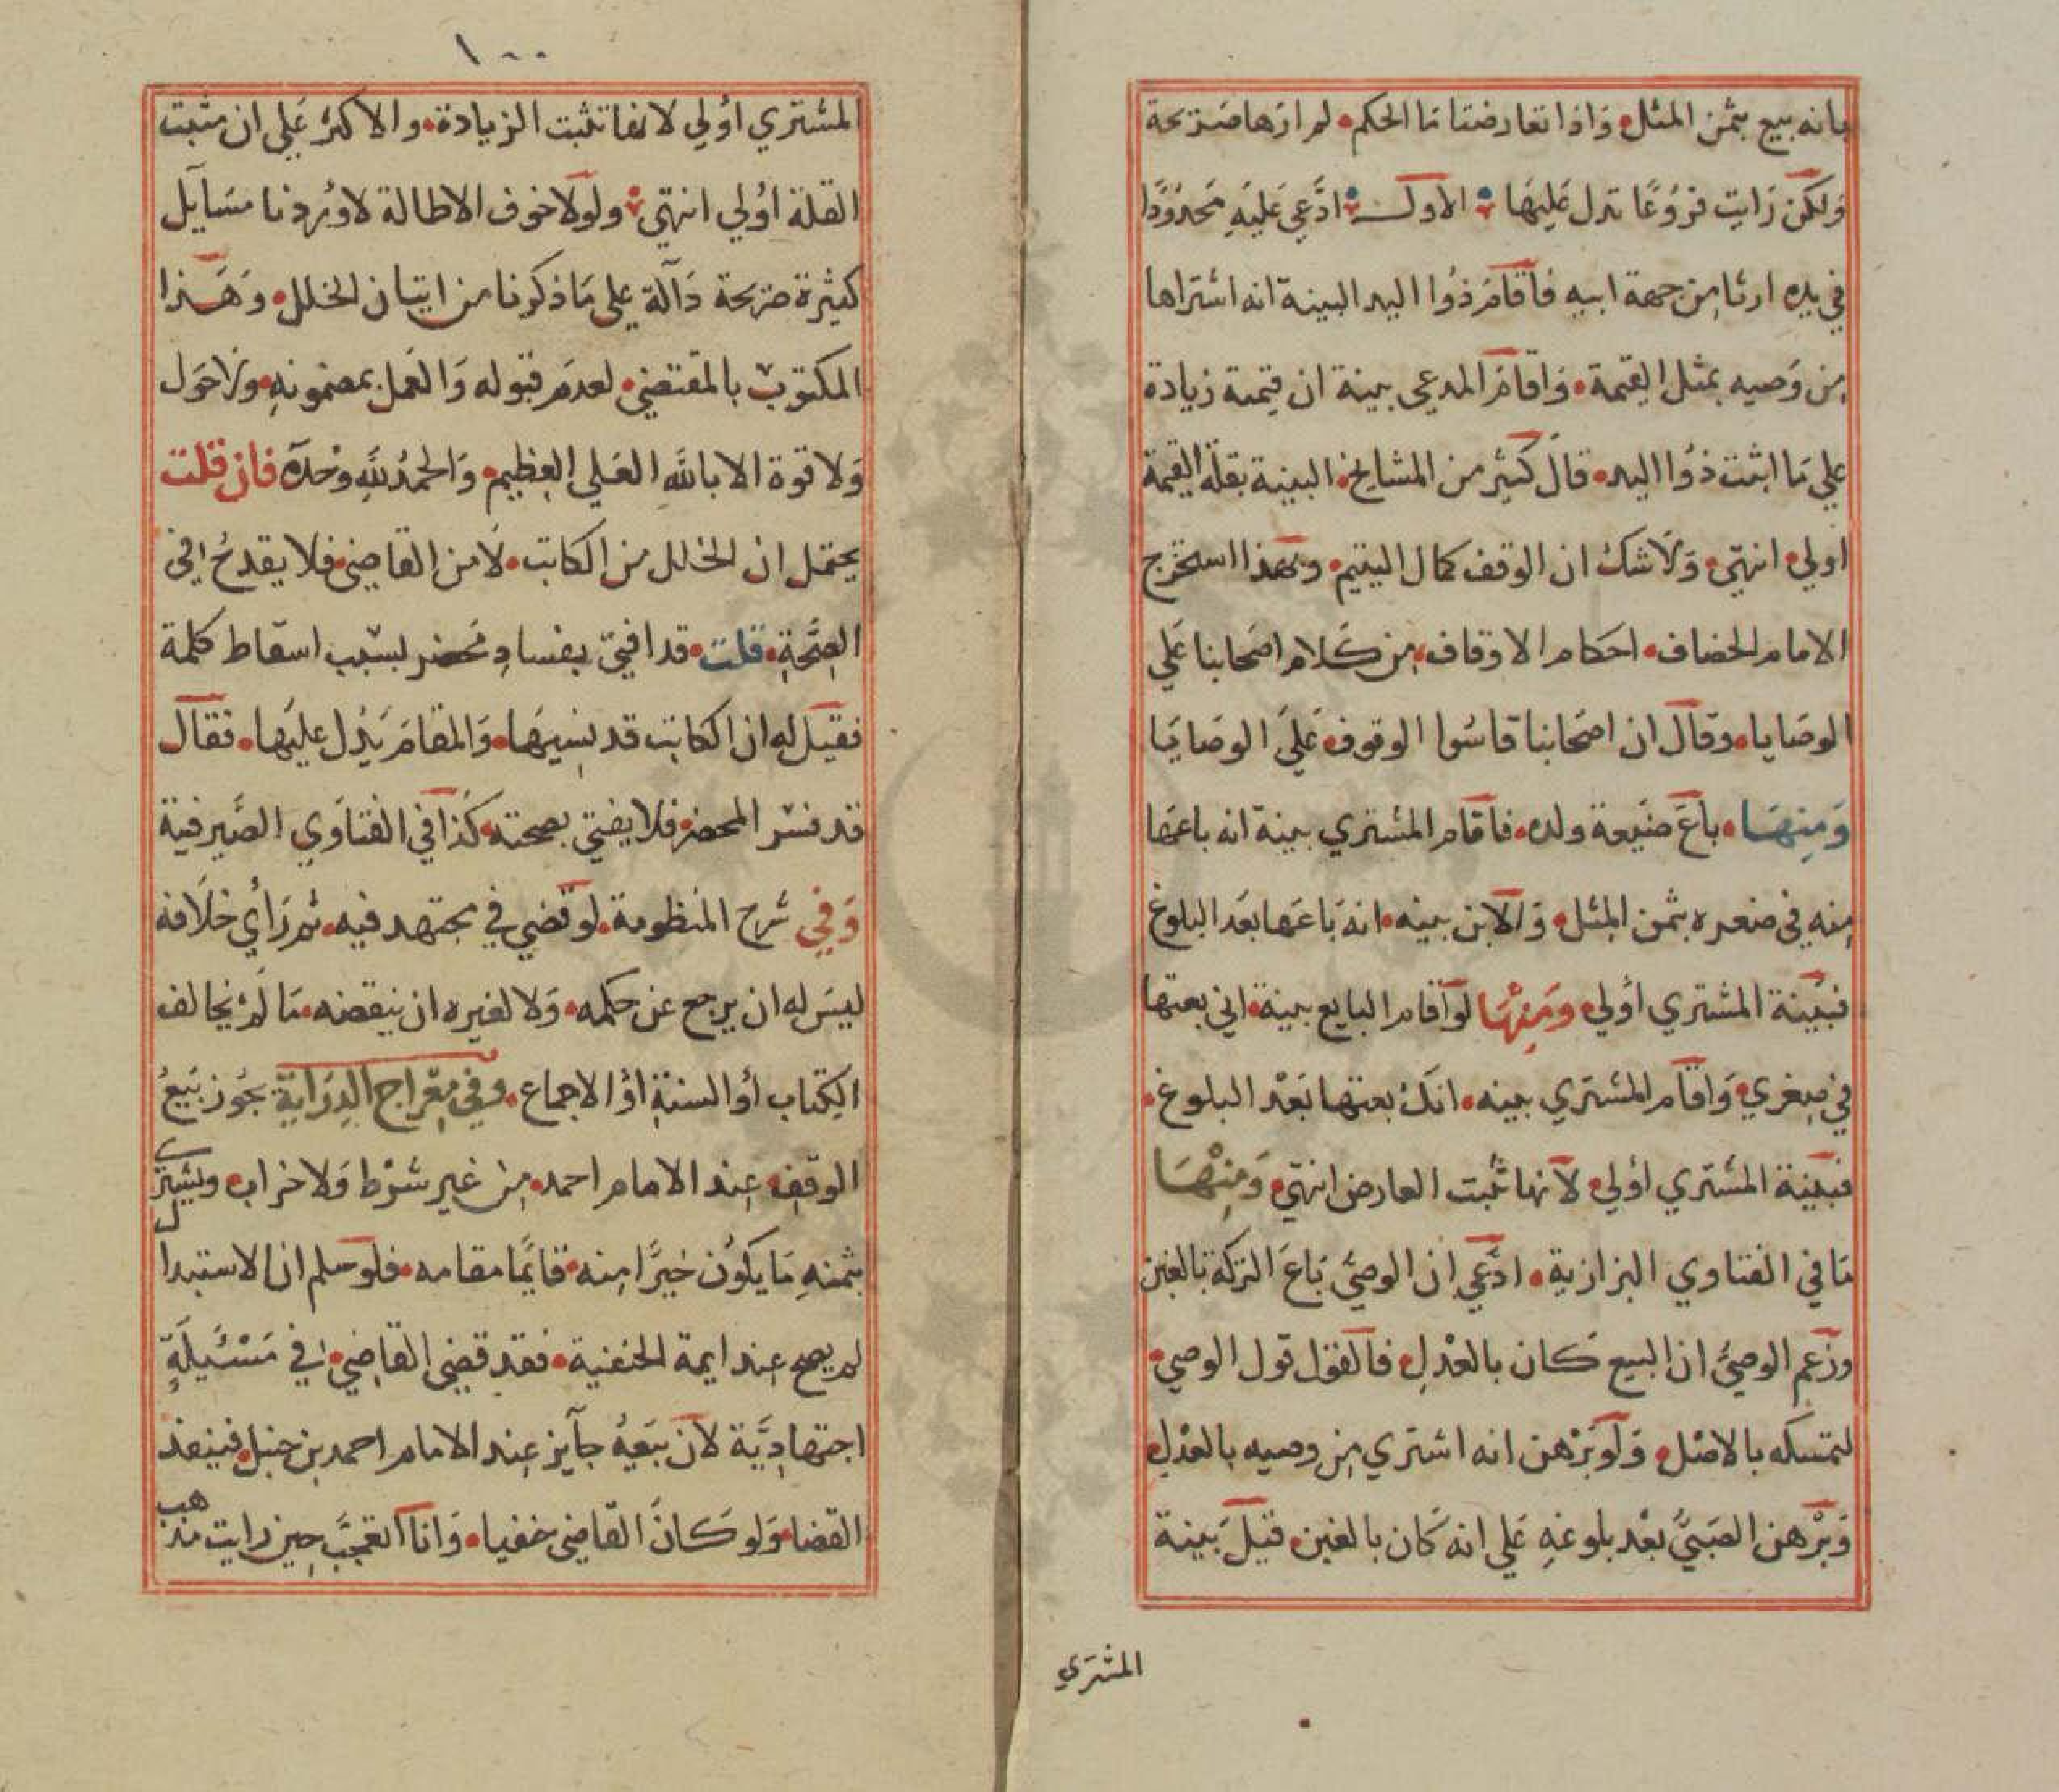 بانه بيع بثمن المثل واذا تعارضتا ما الحكم لم ارها صريحة
ولكن رايت فروعا تدل عليها الاول ادعي عليه محدودا
في يده ارثا من جهة ابيه فاقام ذوا اليد البينة انه اشتراها
من وصيه بمثل القيمة واقام المدعى بينة ان قيمته زيادة
علي ما اثبت ذوا اليد قال كثير من المشايخ البينة بقلة القيمة
اولي انتهي ولا شك ان الوقف كمال اليتيم وبهذا استخرج
الامام الخصاف احكام الاوقاف من كلام اصحابنا علي
الوصايا وقال ان اصحابنا قاسوا الوقوف علي الوصايا
ومنها باع ضيعة ولده فاقام المشتري بينة انه باعها
منه في صغره بثمن المثل والابن بينه انه باعها بعد البلوغ
فبينة المشتري أولي ومنها لو اقام البايع بينة اني بعتها
في صغري واقام المشتري بينه انك بعتها بعد البلوغ
فبينة المشتري أولي لانها تثبت العارض انتهي ومنها
ما في الفتاوي البزازية ادعي ان الوصي باع التركة بالغبن
وزعم الوصي ان البيع كان بالعدل فالقول قول الوصي
لتمسكه بالاصل ولو برهن انه اشتري من وصيه بالعدل
وبرهن الصبي بعد بلوغه علي انه كان بالغبن قيل بينة
المشتري
١٠٠
المشتري أولي لانها تثبت الزيادة والاكثر علي ان مثبت
القلة أولي انتهي ولولا خوف الاطالة لاوردنا مسايل
كثيرة صريحة دالة علي ما ذكرنا من ايتيان الخلل وهذا
المكتوب بالمقتضي لعدم قبوله والعمل بمضمونه ولا حول
ولا قوة الا بالله العلي العظيم والحمد لله وحده فان قلت
يحتمل ان الخلل من الكاتب لا من القاضي فلا يقدح في
الصحة قلت قد افتي بفساد محضر بسبب اسقاط كلمة
فقيل له ان الكاتب قد نسيها والمقام يدل عليها فقال
قد فسر المحضر فلا يفتي بصحته كذا في الفتاوي الصيرفية
وفي شرح المنظومة لو قضي في مجتهد فيه ثم رأي خلافه
ليس له ان يرجع عن حكمه ولا لغيره ان ينقضه ما لم يخالف
الكتاب أو السنة أو الاجماع وفي معراج الدراية يجوز بيع
الوقف عند الامام احمد من غير شرط ولا خراب ويشتري
بثمنه ما يكون خيرا منه قايما مقامه فلو سلم ان الاستبدال
لم يصح عند ايمة الحنفية فقد قضي القاضي في مسئيلة
اجتهادية لان بيعه جايز عند الامام احمد بن حنبل فينفذ
القضا ولو كان القاضي حنفيا وانا اتعجب حين رايت مذهب